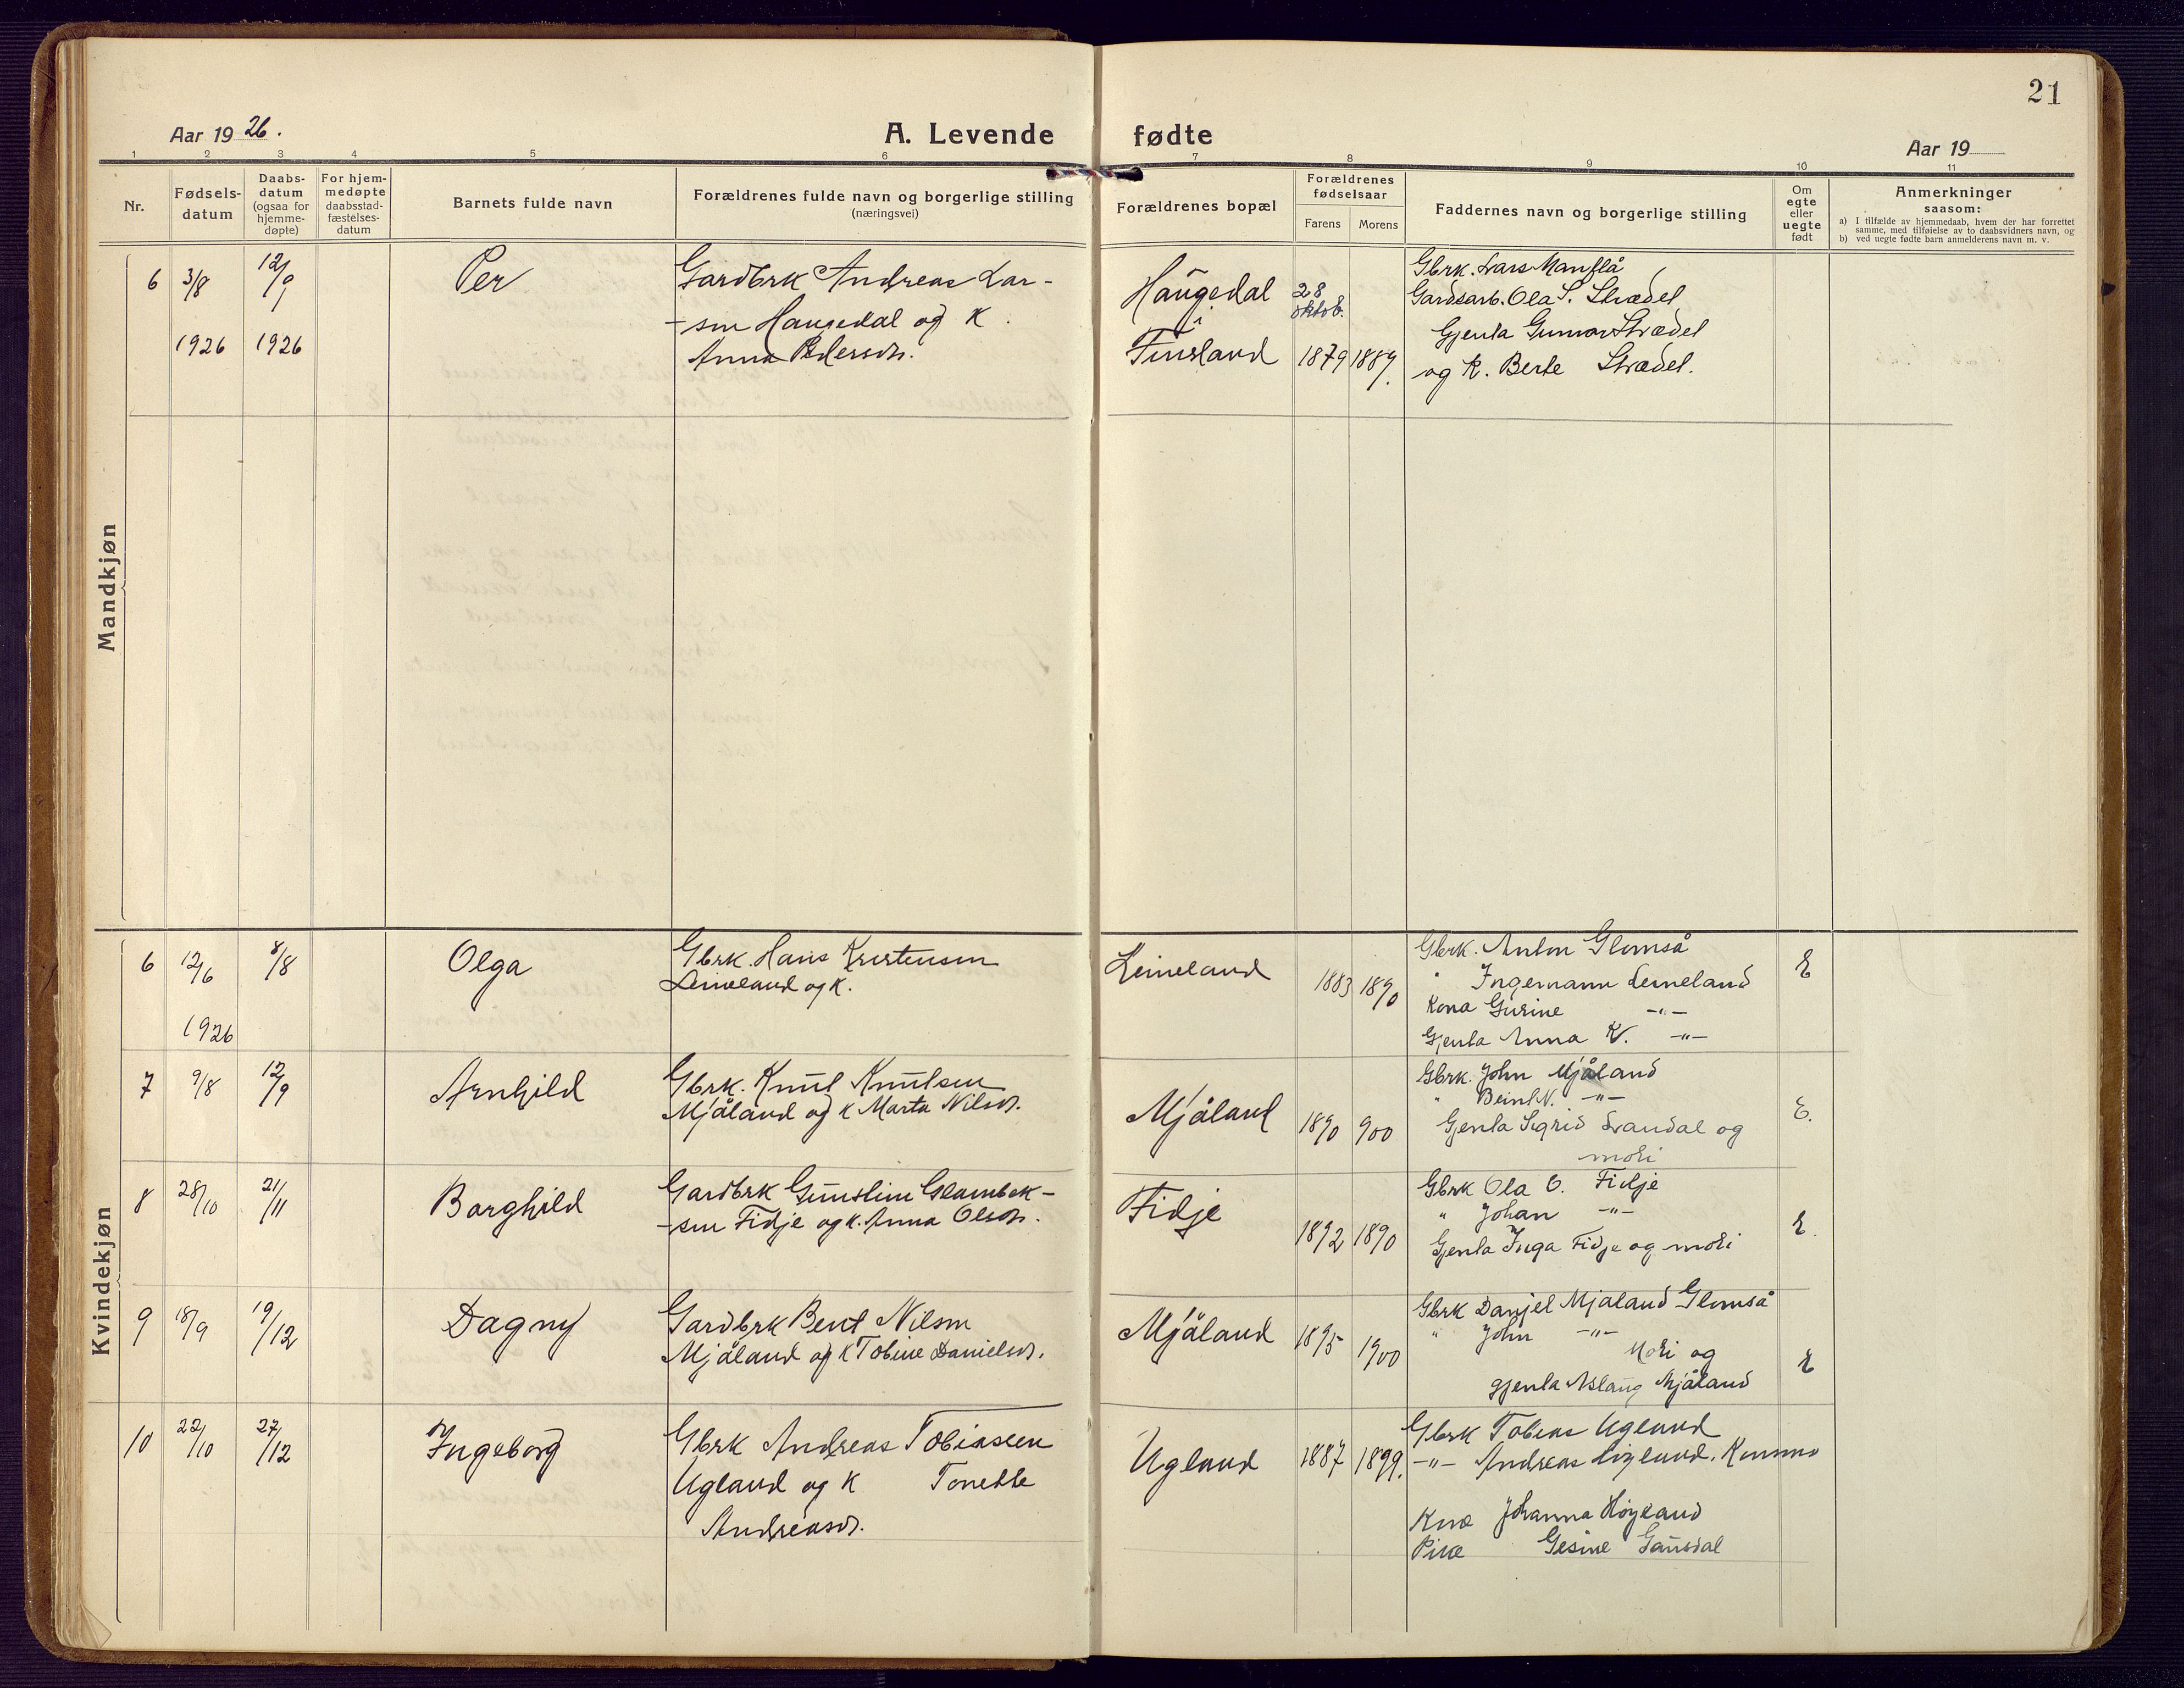 21
Aar 1926.
A. Levende fødte
Aar 19
1 2 3 4 5 6 7 8 9 10 11
Nr.
Fødsels-
datum
Daabs-
datum
(ogsaa for
hjemme-
døpte)
For hjem-
medøpte
daabsstad-
fæstelses-
datum
Barnets fulde navn
Forældrenes fulde navn og borgerlige stilling
(næringsvei)
Forældrenes bopæl
Forældrenes
fødselsaar
Farens Morens
Faddernes navn og borgerlige stilling
Om
egte
eller
uegte
født
Anmerkninger
saasom:
a) I tilfælde av hjemmedaab, hvem der har forrettet
samme, med tilføielse av to daabsvidners navn, og
b) ved uegte fødte barn anmelderens navn m. v.
Mandkjøn
6 3/8 1926
12/9 1926
Per
Gardbrk Andreas Lar-
-sen Haugedal og K.
Anna Pedersdr.
Haugedal
i
Finsland
28
oktob.
1879 1889.
Gbrk. Lars Manflå
Gardsarb. Ola S. Strædel
Gjenta Gunvor Strædel
og K. Berte Strædel.
Kvindekjøn
6 12/6 1926
8/8
Olga
Gbrk. Hans Kristensen
Leineland og K.
Leineland
1883 1890
Gbrk. Anton Glomså
" Ingemann Leineland
Kona Gurine -"-
Gjenta Anna K. -"-
E
7 9/8 12/9
Arnhild
Gbrk. Knut Knutsen
Mjåland og K Marta Nilsdr.
Mjåland
1890 900
Gbrk. John Mjåland
" Beint N. -"-
Gjenta Sigrid Lraudal og
mori
E.
8 28/10 21/11
Borghild
Gardbrk Gunstein Glambek-
-sen Fidje og K. Anna Olsdr.
Fidje
1892 1890
Gbrk Ola O. Fidje
" Johan -"-
Gjenta Inga Fidje og mori
E.
9 18/9 19/12
Dagny
Gardbrk Bent Nilsen
Mjåland og K Tobine Danielsdr.
Mjåland
1895 1900
Gbrk Danjel Mjaland Glomså
" John -"-
Mori og
gjenta Aslaug Mjåland
E
10 22/10 27/12
Ingeborg
Gbrk Andreas Tobiassen
Ugland og K Tonette
Andreasdr.
Ugland
1887 1899.
Gbrk Tobias Ugland
-"- Andreas Høyland. Konsmo
Kona Johanna Høyland
Pike Gesine